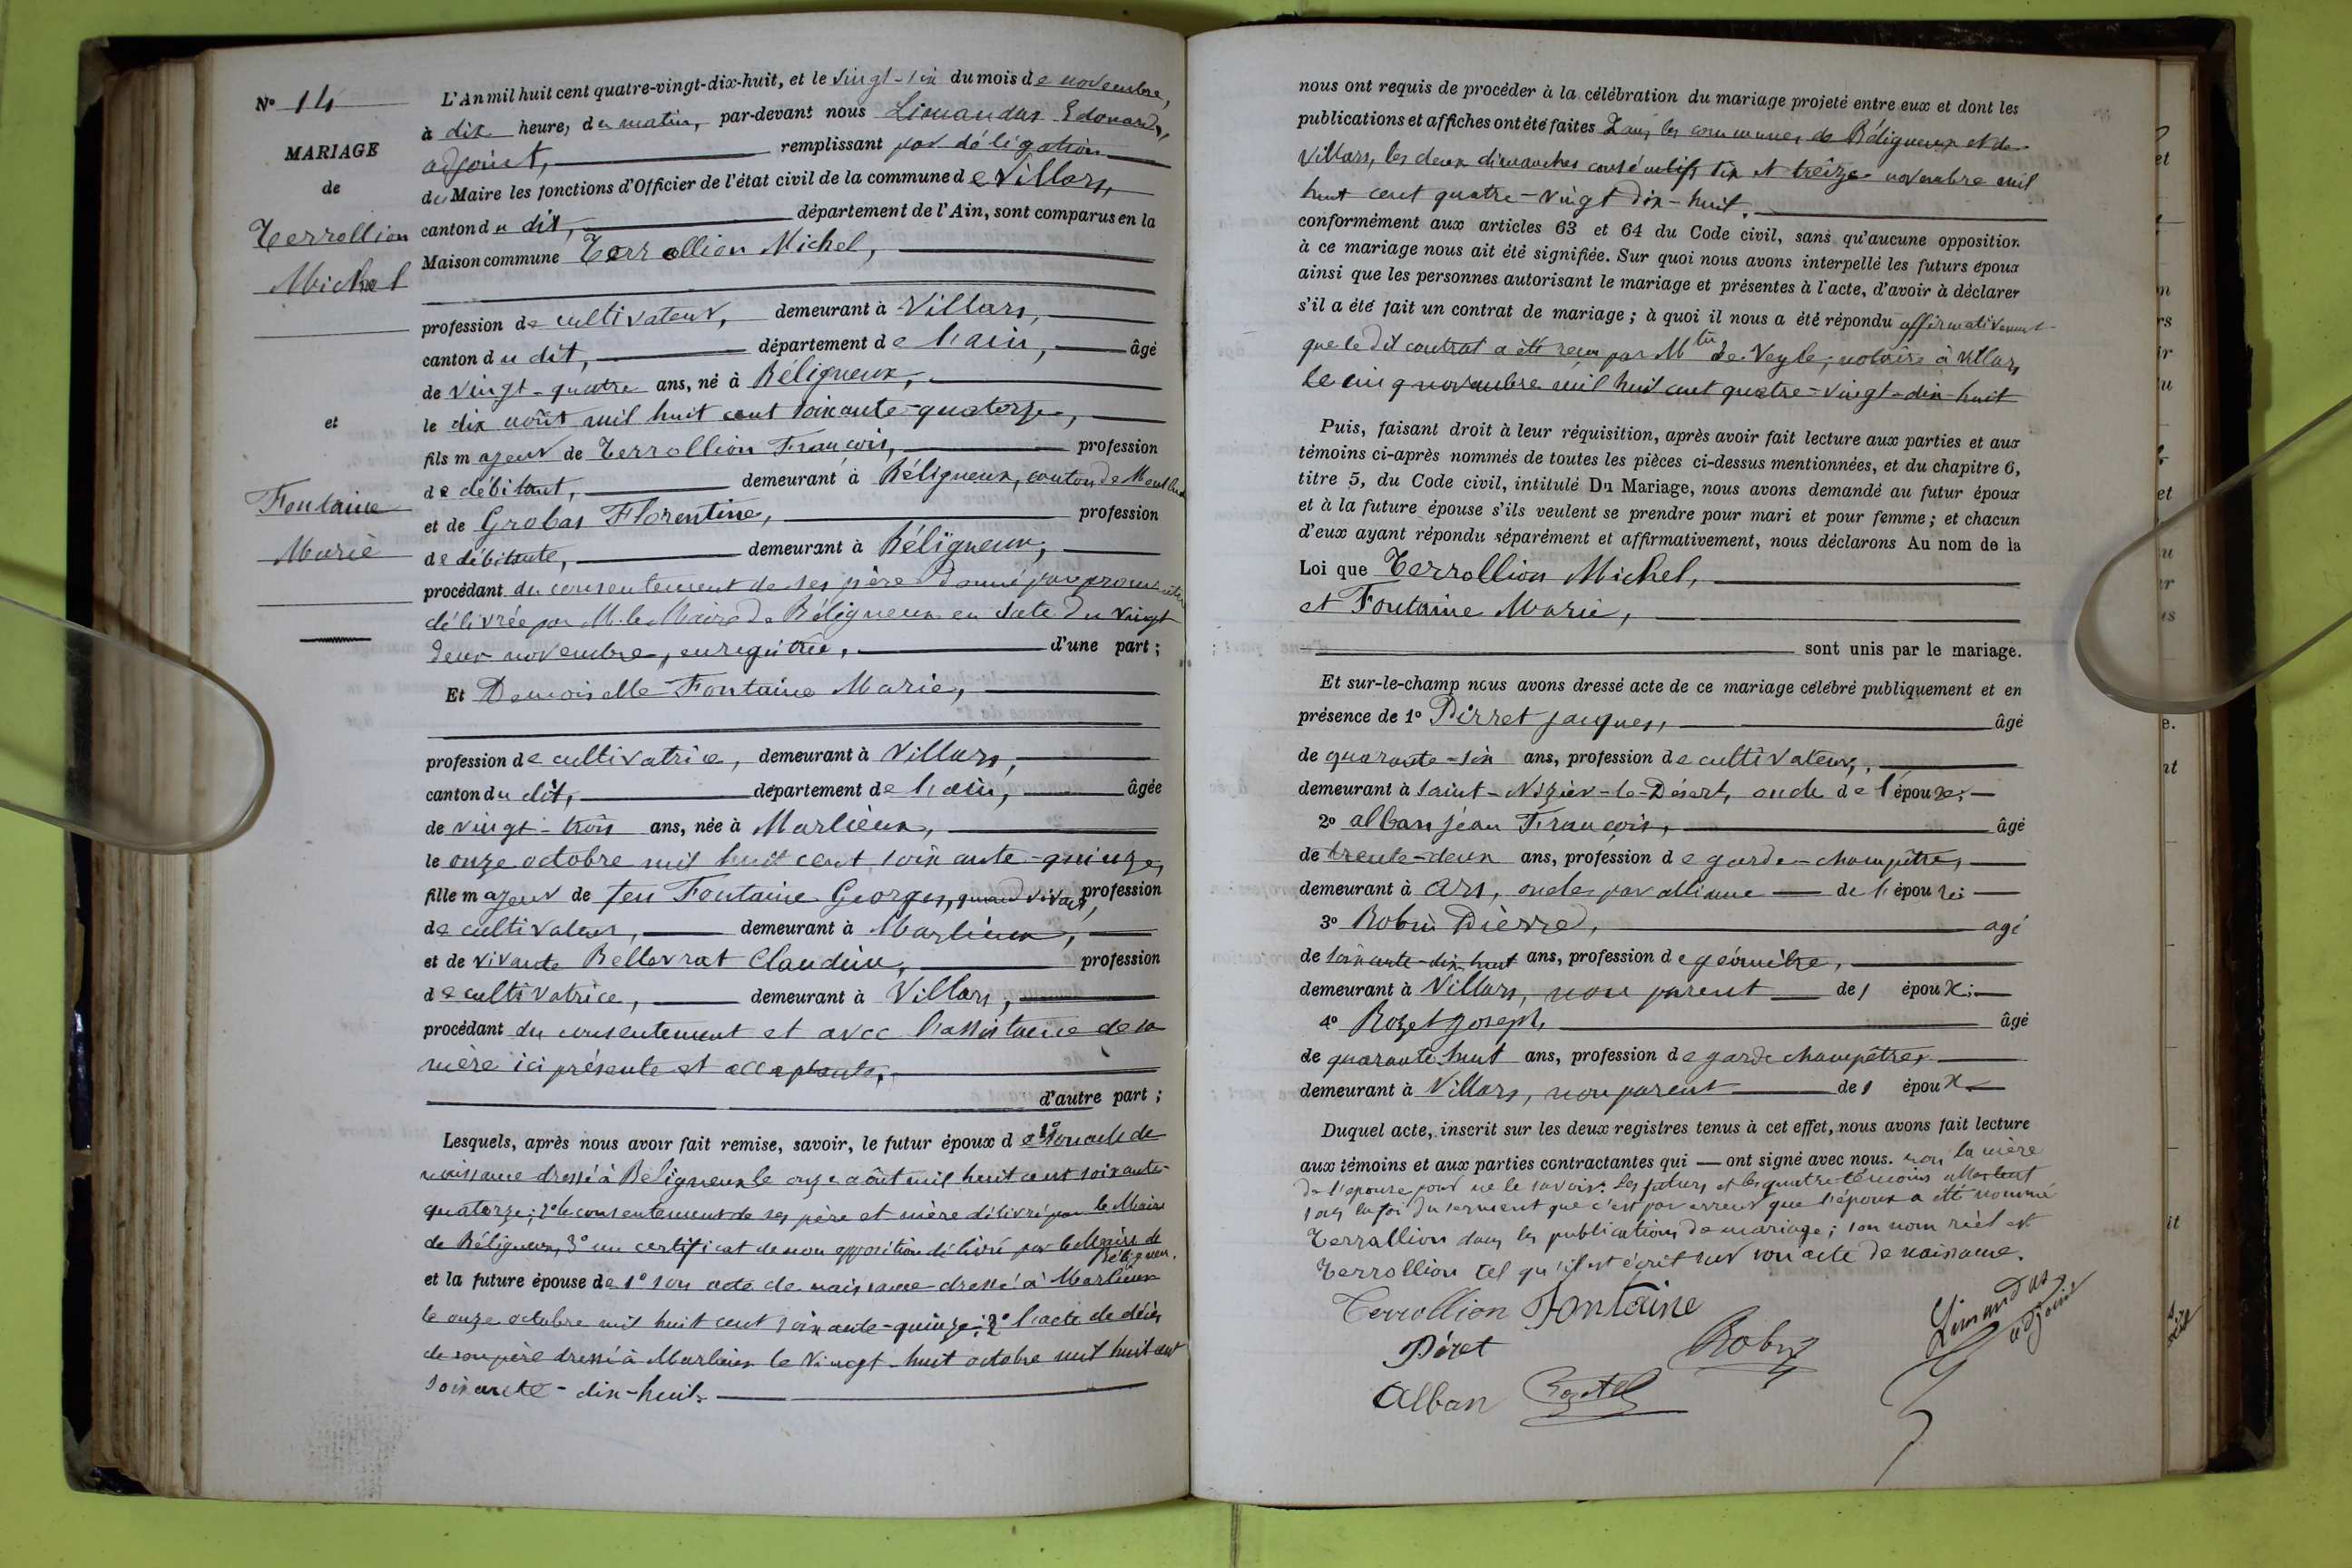 N° 14
MARIAGE
de
Terrollion
Michel
et
Fontaine
Marie
L'An mil huit cent quatre-vingt-dix-huit, et le vingt-six du mois de novembre,
à dix heures du matin, par-devant nous Limandas Edouard,
adjoint, remplissant par déligation
du Maire les fonctions d'Officier de l'état civil de la commune de Villars,
canton du dit, département de l'Ain, sont comparus en la
Maison commune Terrollion Michel,
profession de cultivateur, demeurant à Villars,
canton du dit, département de l'ain, âgé
de vingt-quatre ans, né à Béligneux,
le dix août mil huit cent soixante-quatorze,
fils majeur de Terrollion François, profession
de débitant, demeurant à Béligneux, canton de
et de Grobas Florentine, profession
de débitante, demeurant à Béligneux,
procédant du consentement de ses père donné par
délivrée par M. le Maire de Béligneux en date du vingt
deux novembre, enregistrée, d'une part;
Et Demoiselle Fontaine Marie,
profession de cultivatrice, demeurant à Villars,
canton du dit, département de l'ain, âgée
de vingt-trois ans, née à Marlieux,
le onze octobre mil huit cent soixante-quinze,
fille majeur de feu Fontaine Georges, quand vivait, profession
de cultivateur, demeurant à Marlieux,
et de vivante Bellevrat Claudine, profession
de cultivatrice, demeurant à Villars,
procédant du consentement et avec l'assistance de sa
mère ici présente et acceptante,
d'autre part;
Lesquels, après nous avoir fait remise, savoir, le futur époux de 1° son acte de
naissance dressé à Béligneux le onze août mil huit cent soixante-
quatorze; 2° le consentement de ses père et mère délivré par le Maire
de Béligneux, 3° un certificat de non opposition délivré par le Maire de
Béligneux.
et la future épouse de 1° son acte de naissance dressé à Marlieux
le onze octobre mil huit cent soixante-quinze; 2° l'acte de décès
de son père dressé à Marlieux le vingt-huit octobre mil huit cent
soixante-dix-huit.
nous ont requis de procéder à la célébration du mariage projeté entre eux et dont les
publications et affiches ont été faites Dans les communes de Béligneux et de
Villars, les deux dimanches consécutifs six et treize novembre mil
huit cent quatre-vingt dix-huit.
conformément aux articles 63 et 64 du Code civil, sans qu'aucune opposition
à ce mariage nous ait été signifiée. Sur quoi nous avons interpellé les futurs époux
ainsi que les personnes autorisant le mariage et présentes à l'acte, d'avoir à déclarer
s'il a été fait un contrat de mariage; à quoi il nous a été répondu affirmativement
que le dit contrat a été reçu par M tre de Veyle, notaire à Villars,
le cinq novembre mil huit cent quatre-vingt-dix-huit
Puis, faisant droit à leur réquisition, après avoir fait lecture aux parties et aux
témoins ci-après nommés de toutes les pièces ci-dessus mentionnées, et du chapitre 6,
titre 5, du Code civil, intitulé Du Mariage, nous avons demandé au futur époux
et à la future épouse s'ils veulent se prendre pour mari et pour femme; et chacun
d'eux ayant répondu séparément et affirmativement, nous déclarons Au nom de la
Loi que Terrollion Michel,
et Fontaine Marie,
sont unis par le mariage.
Et sur-le-champ nous avons dressé acte de ce mariage célébré publiquement et en
présence de 1° Pirret Jacques, âgé
de quarante-six ans, profession de cultivateur,
demeurant à Saint-Nizier-le-Désert, oncle de l'épouse;
2° alban jean François, âgé
de trente-deux ans, profession de garde-champêtre,
demeurant à Ars, oncle par alliance de l'épouse;
3° Robin Pierre, agé
de soixante-dix-huit ans, profession de géomètre,
demeurant à Villars, non parent des époux;
4° Rozet Joseph, âgé
de quarante-huit ans, profession de garde champêtre,
demeurant à Villars, non parent des époux
Duquel acte, inscrit sur les deux registres tenus à cet effet, nous avons fait lecture
aux témoins et aux parties contractantes qui — ont signé avec nous. non la mère
de l'épouse pour ne le savoir. les futurs et les quatre témoins attestent
sous la foi du serment que c'est par erreur que l'époux a été nommé
Terrallion dans les publications de mariage; son nom réel est
Terrollion tel qu'il est écrit sur son acte de naissance.
Terrollion Fontaine
Limandas
adjoint
Péret Robin
Alban Rozet